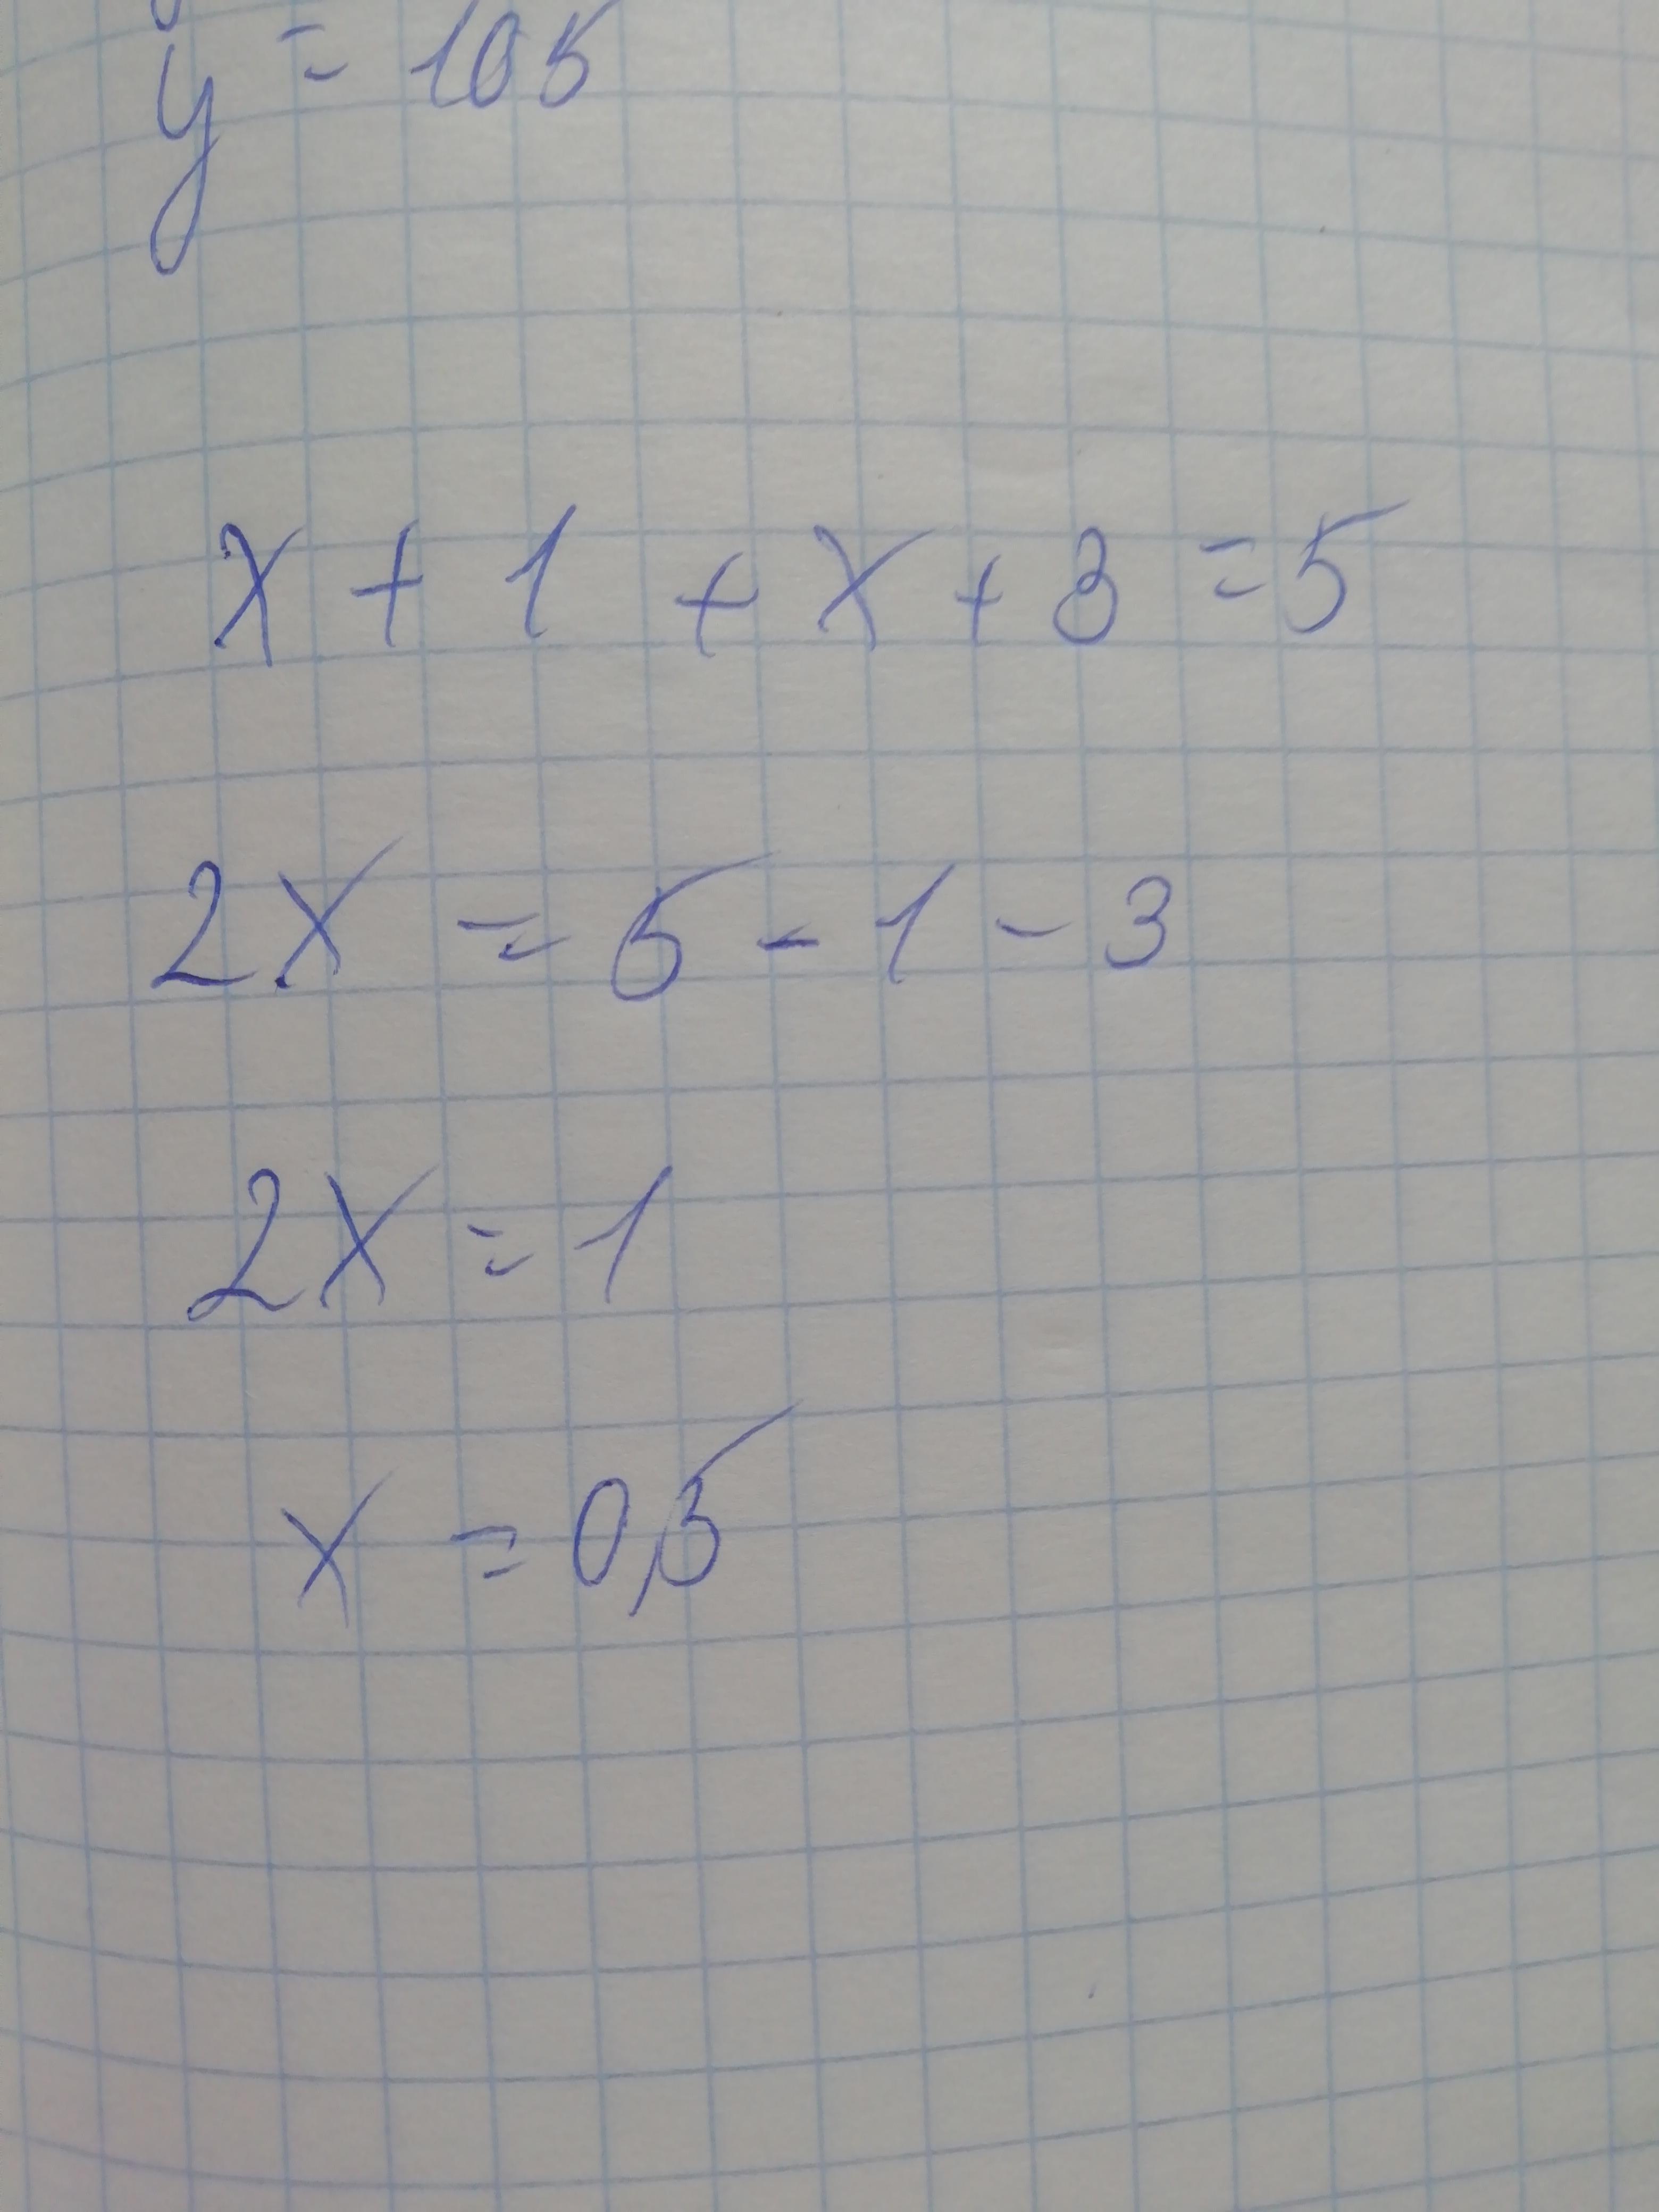 y = 105
x + 1 + x + 3 = 5
2x = 5 - 1 - 3
2x = 1
x = 0,5